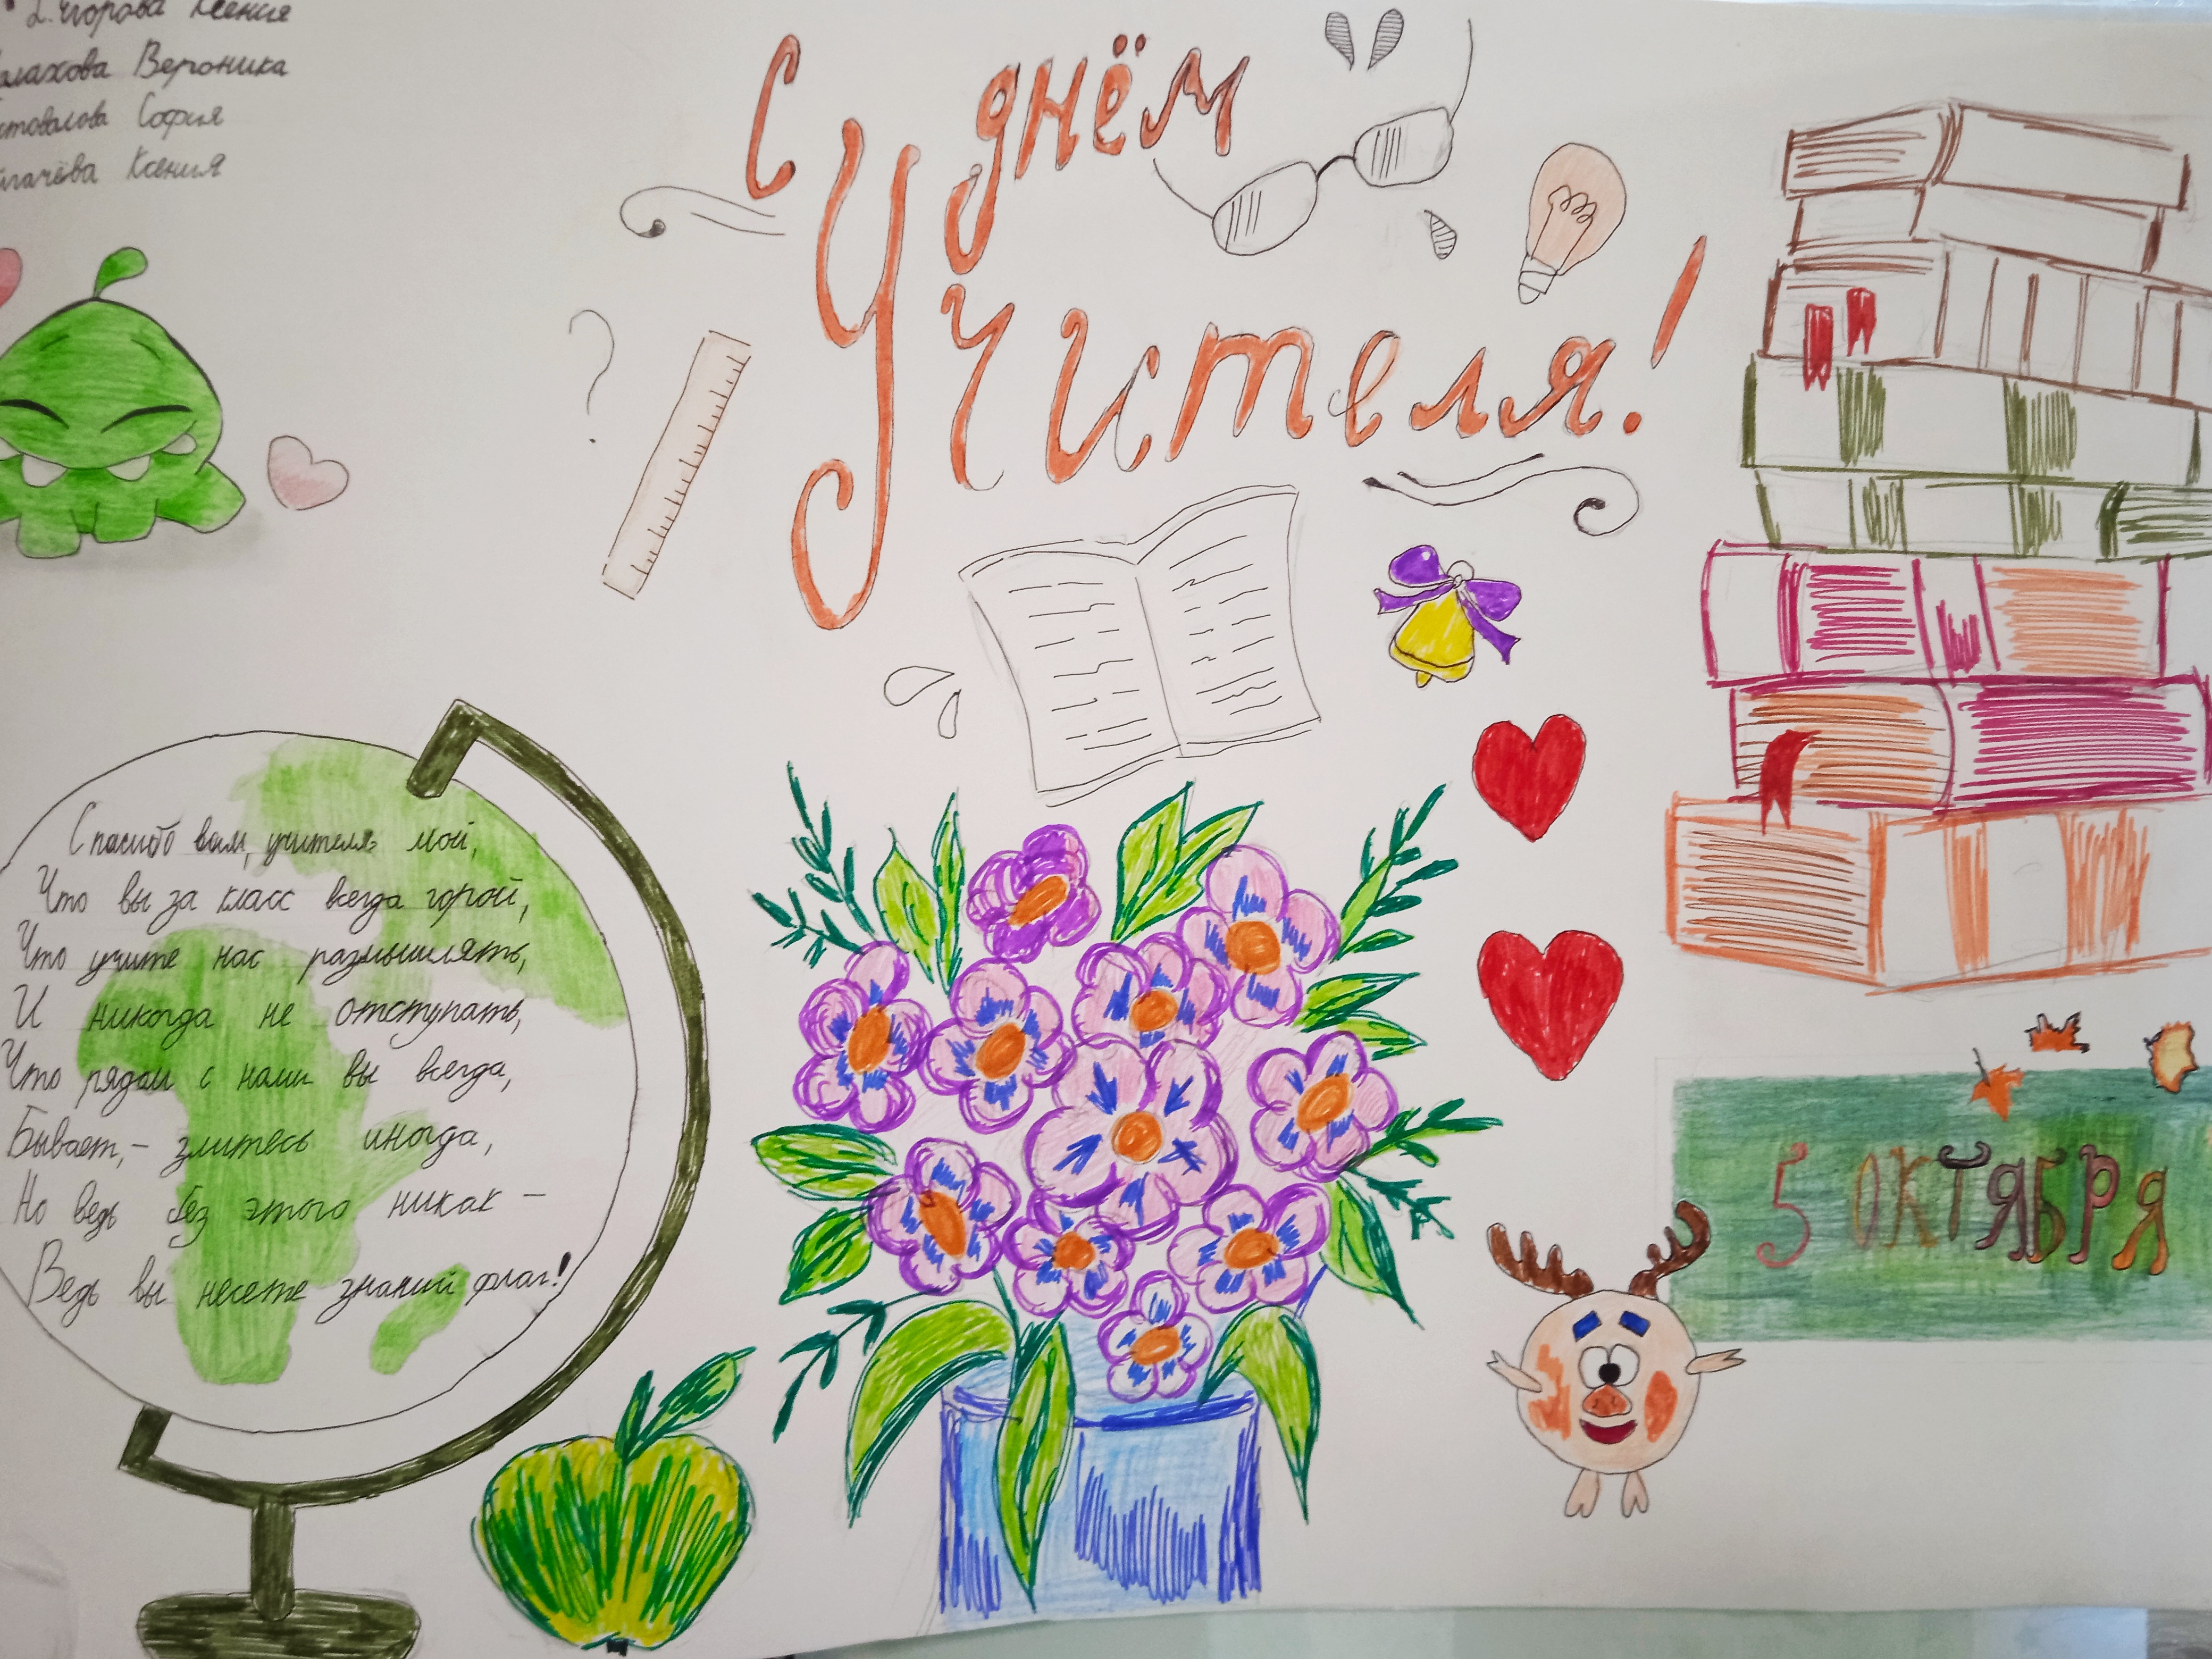 Ксения
Вероника
София
Ксения
С днём
Учителя!
Спасибо вам, учителя мои,
Что вы за класс всегда горой,
Что учите нас размышлять,
И никогда не отступать,
Что рядом с нами вы всегда,
Бывает, - злитесь иногда,
Но ведь без этого никак -
Ведь вы несете знаний флаг!
5 ОКТЯБРЯ